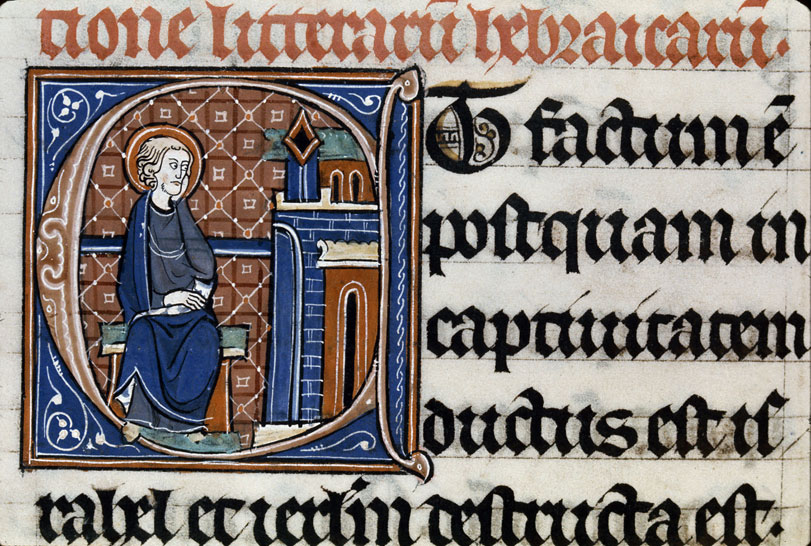 tione litterarū hebraicarū.
ET factum ē
postquam in
captiuitatem
ductus est is
rahel et ierlm̄ destructa est.